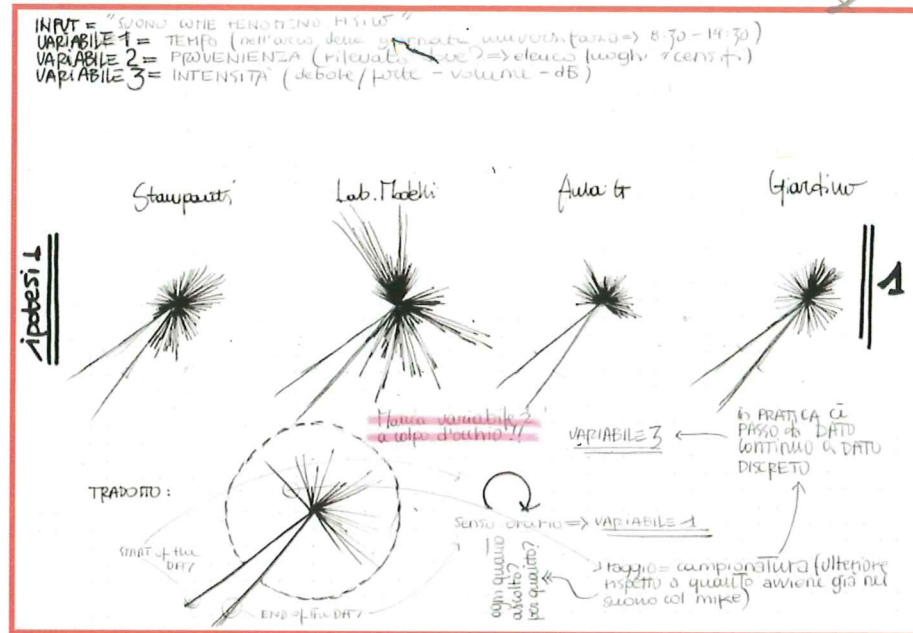 INPUT = "SUONO COME FENOMENO FISICO"
VARIABILE 1 = TEMPO (nell'arco della giornata universitaria => 8:30 - 19:30)
VARIABILE 2 = PROVENIENZA (rilevato dove? => elenco luoghi recensiti)
VARIABILE 3 = INTENSITÀ (debole/forte - volume - dB)
Stampanti
Lab. Modelli
Aula G
Giardino
ipotesi 1
1
Manca variabile 2
a colpo d'occhio!!
VARIABILE 3
in PRATICA
PASSO da DATO
CONTINUO a DATO
DISCRETO
TRADOTTO:
START of the
DAY
END of the DAY
SENSO orario => VARIABILE 1
ogni quanto
ascolto?
per quanto?
raggio = campionatura (ulteriore
rispetto a quanto avviene già nel
suono col mike)